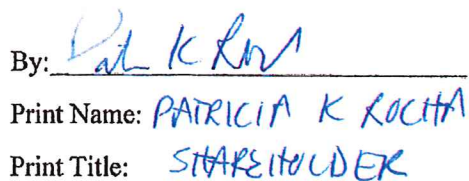 By: Patr K Roch
Print Name: PATRICIA K ROCHA
Print Title: SHAREHOLDER